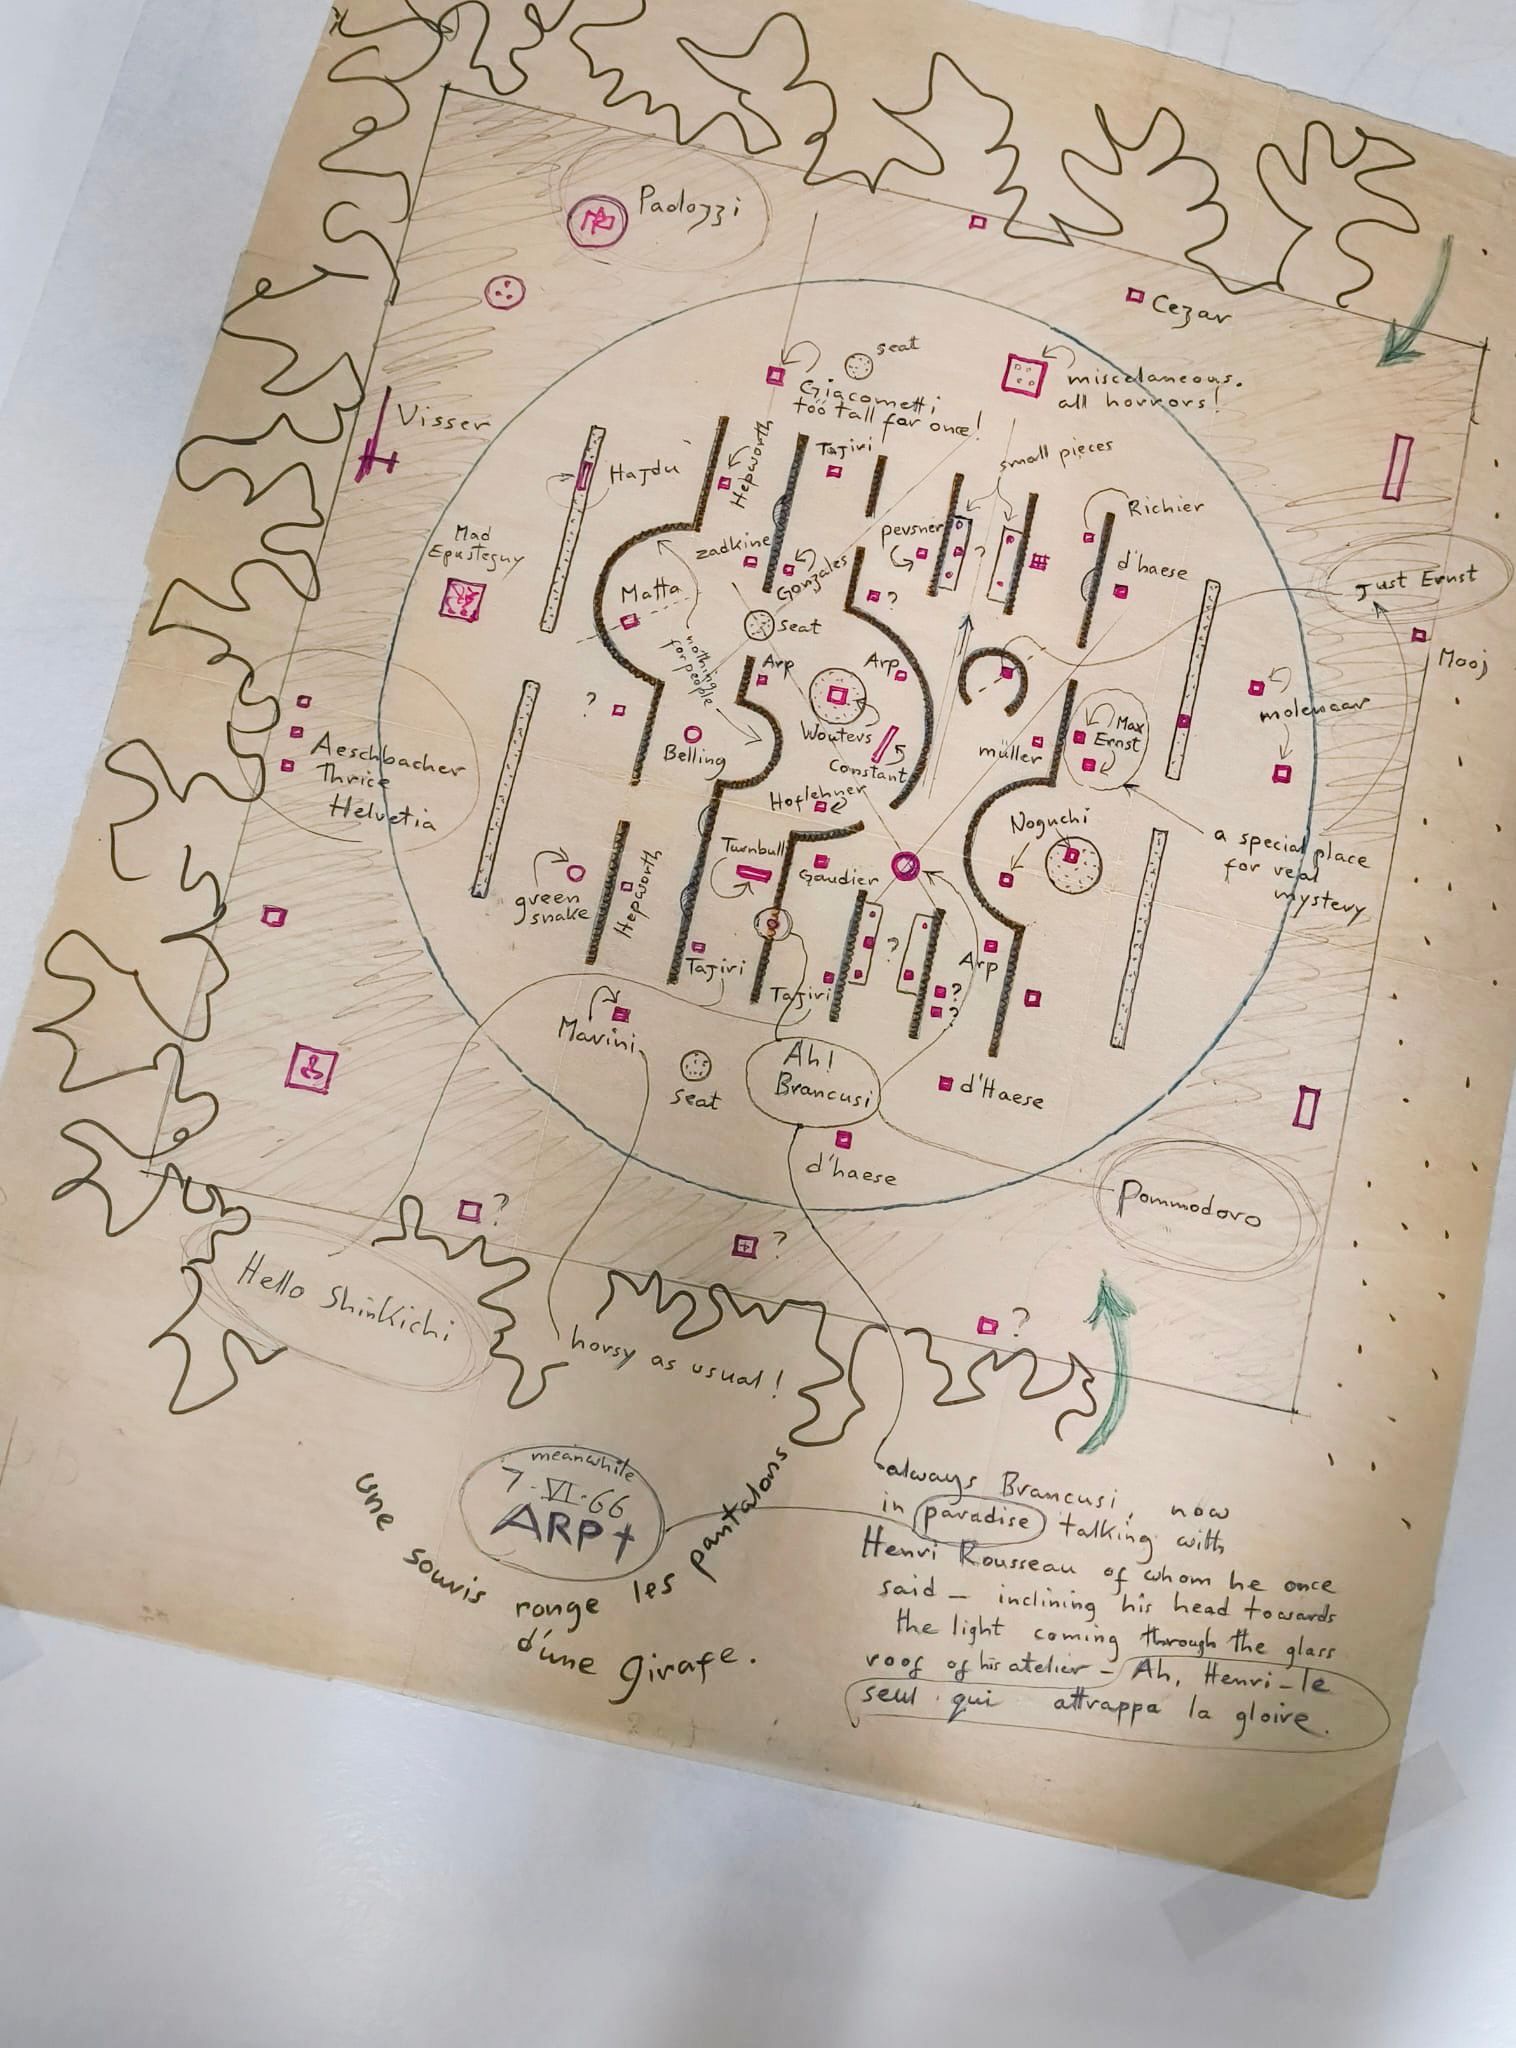 Paolozzi
Cezar
seat
Giacometti
too tall for once!
miscelaneous.
all horrors!
Visser
Hajdu
Hepworth
Tajiri
small pieces
Richier
Mad
Epusteguy
zadkine
Gonzales
pevsner
?
d'haese
Just Ernst
Matta
seat
?
nothing
for people
Arp
Arp
Mooj
molenaar
?
Belling
Wouters
Constant
müller
Max
Ernst
Aeschbacher
Thrice
Helvetia
Hoflehner
Noguchi
a special place
for real
mystery
green
snake
Hepworth
Turnbull
Gaudier
?
Arp
Tajiri
Tajiri
?
?
Marini
seat
Ah!
Brancusi
d'Haese
d'haese
Pommodoro
?
?
?
Hello Shinkichi
horsy as usual!
meanwhile
7-VI-66
ARP†
une souris ronge les pantalons
d'une girafe.
always Brancusi, now
in paradise talking with
Henri Rousseau of whom he once
said – inclining his head towards
the light coming through the glass
roof of his atelier – Ah, Henri – le
seul qui attrappa la gloire.